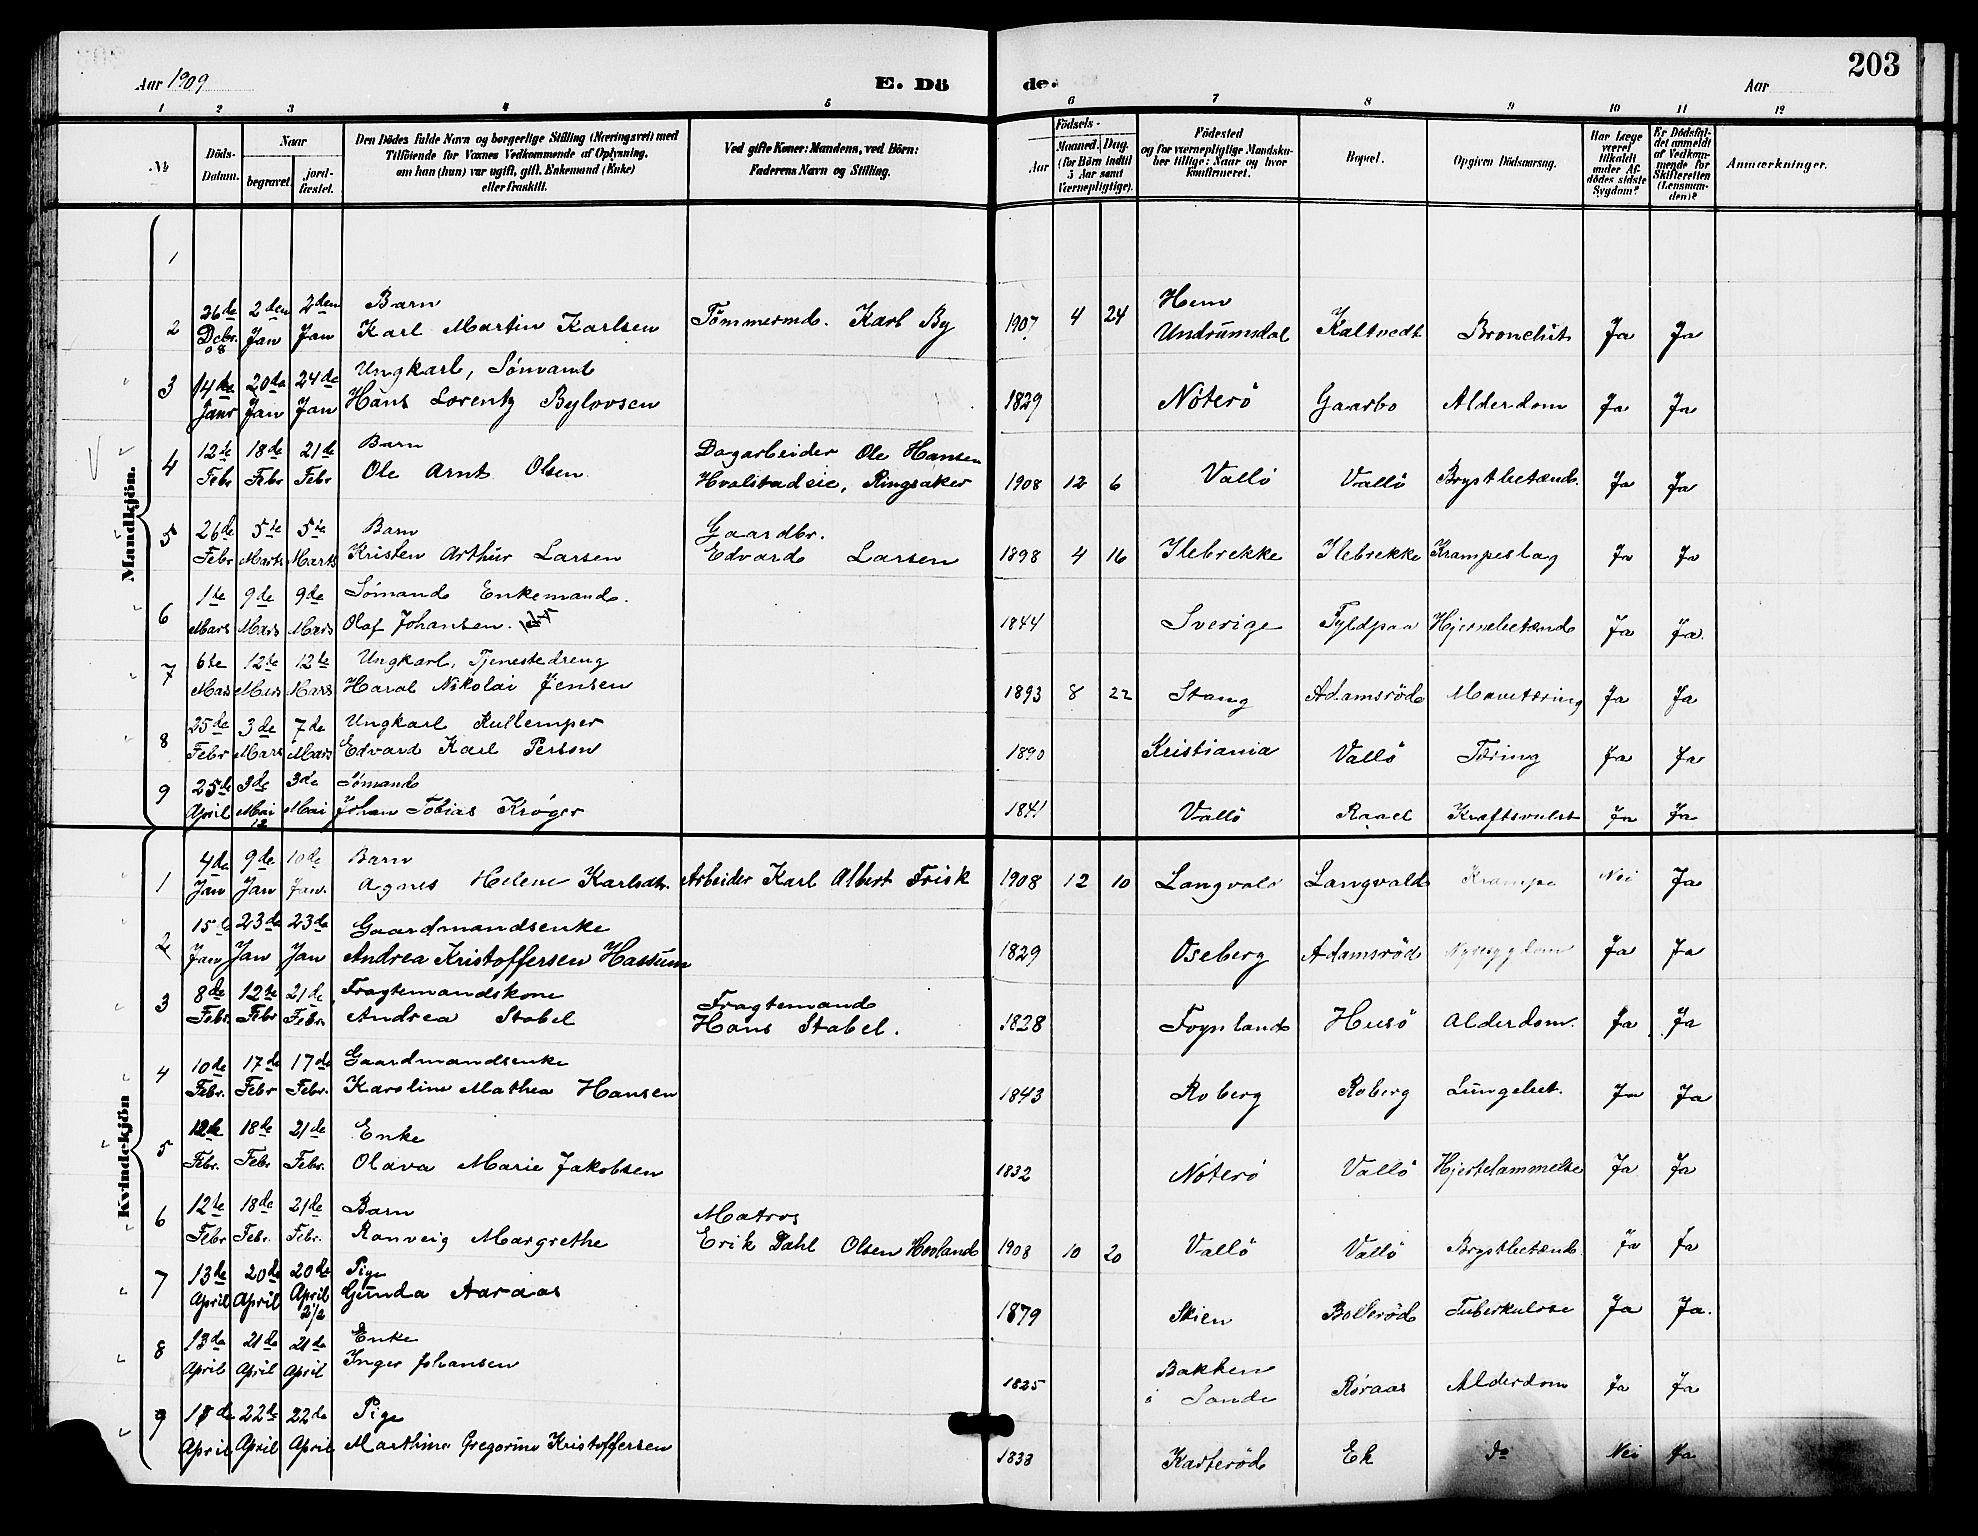 Aar 1909
E. Döde.
Aar
203
1 2 3 4 5 6 7 8 9 10 11 12
No
Döds-Datum.
Naar
begravet.
jord-fæstet.
Den Dödes fulde Navn og borgerlige Stilling (Næringsvei) med
Tilföiende for Voxnes Vedkommende af Oplysning,
om han (hun) var ugift, gift, Enkemand (Enke)
eller fraskilt.
Ved gifte Koner: Mandens, ved Börn:
Faderens Navn og Stilling.
Födsels-
Aar
Maaned. Dag.
(for Börn indtil
5 Aar samt
Værnepligtige).
Födested
og for værnepligtige Mandska-
ber tillige: Naar og hvor
konfirmeret.
Bopæl.
Opgiven Dödsaarsag.
Har Læge
været
tilkaldt
under Af-
dödes sidste
Sygdom?
Er Dödsfal-
det anmeldt
af Vedkom-
mende for
Skifteretten
(Lensman-
den)?
Anmærkninger.
Mandkjön.
1
2 26de Dcbr. 08 2den Jan 2den Jan Barn Karl Martin Karlsen Tømmermd. Karl By 1907 4 24 Hem Undrumsdal Kaltvedt Bronchit Ja Ja
3 14de Janr 20de Jan 24de Jan Ungkarl, Sømand Hans Lorentz Bylovsen 1829 Nöterö Gaarbo Alderdom Ja Ja
4 12te Febr 18de Febr 21de Febr Barn Ole Arnt Olsen Dagarbeider Ole Hansen Hvalstadeie, Ringsaker 1908 12 6 Vallö Vallö Brystbetænd. Ja Ja
5 26de Febr 5te Marts 5te Marts Barn Kristen Arthur Larsen Gaardbr. Edvard Larsen 1898 4 16 Ilebrekke Ilebrekke Krampeslag Ja Ja
6 1te Mars 9de Mars 9de Mars Sømand Enkemand. Olaf Johansen. 1844 Sverige Fyldpaa Hjernebetænd Ja Ja.
7 6te Mars 12te Mars 12te Mars Ungkarl, Tjenestedreng Haral Nikolai Jensen 1893 8 22 Stang Adamsröd Mavetæring Ja Ja
8 25de Febr 3de Mars 7de Mars Ungkarl Kullemper Edvard Karl Person 1890 Kristiania Vallö Tæring Ja Ja
9 25de April 3de Mai 12 3de Mai Sømand Johan Tobias Krøger 1841 Vallö Rael Kræftsvulst Ja Ja
Kvindekjön
1 4de Jan 9de Jan 10de Jan. Barn Agnes Helene Karlsdt. Arbeider Karl Albert Frisk 1908 12 10 Langvald Langvald Krampe Nei Ja
2 15de Jan 23de Jan 23de Jan Gaardmandsenke Andrea Kristoffersen Hassum 1829 Oseberg Adamsröd Nyresygdom Ja Ja
3 8de Febr. 12te Febr 21de Febr. Fragtemandskone Andrea Stabel Fragtemand Hans Stabel. 1828 Toynland Husö Alderdom. Ja Ja
4 10de Febr. 17de Febr 17de Febr. Gaardmandsenke Karoline Mathea Hansen 1843 Roberg Roberg Lungebet. Ja Ja
5 12te Febr. 18de Febr 21de Febr. Enke Olava Marie Jakobsen 1832 Nöterö Vallö Hjertelammelse Ja Ja
6 12te Febr 18de Febr. 21de Febr. Barn Ranveig Margrethe Matros Erik Dahl Olsen Hovland 1908 10 20 Vallö Vallö Brystbetænd. Ja Ja
7 13de April 20de April 20de April 2/2 Pige Gunda Aaraas 1879 Skien Bolleröd Tuberkulose Ja Ja.
8 13de April 21de April 21de April Enke Inger Johansen 1825 Bakken i Sande Røraas Alderdom Ja Ja
9 15de April 22de April 22de April Pige Marthine Gregorine Kristoffersen 1833 Karteröd Ek do Nei Ja